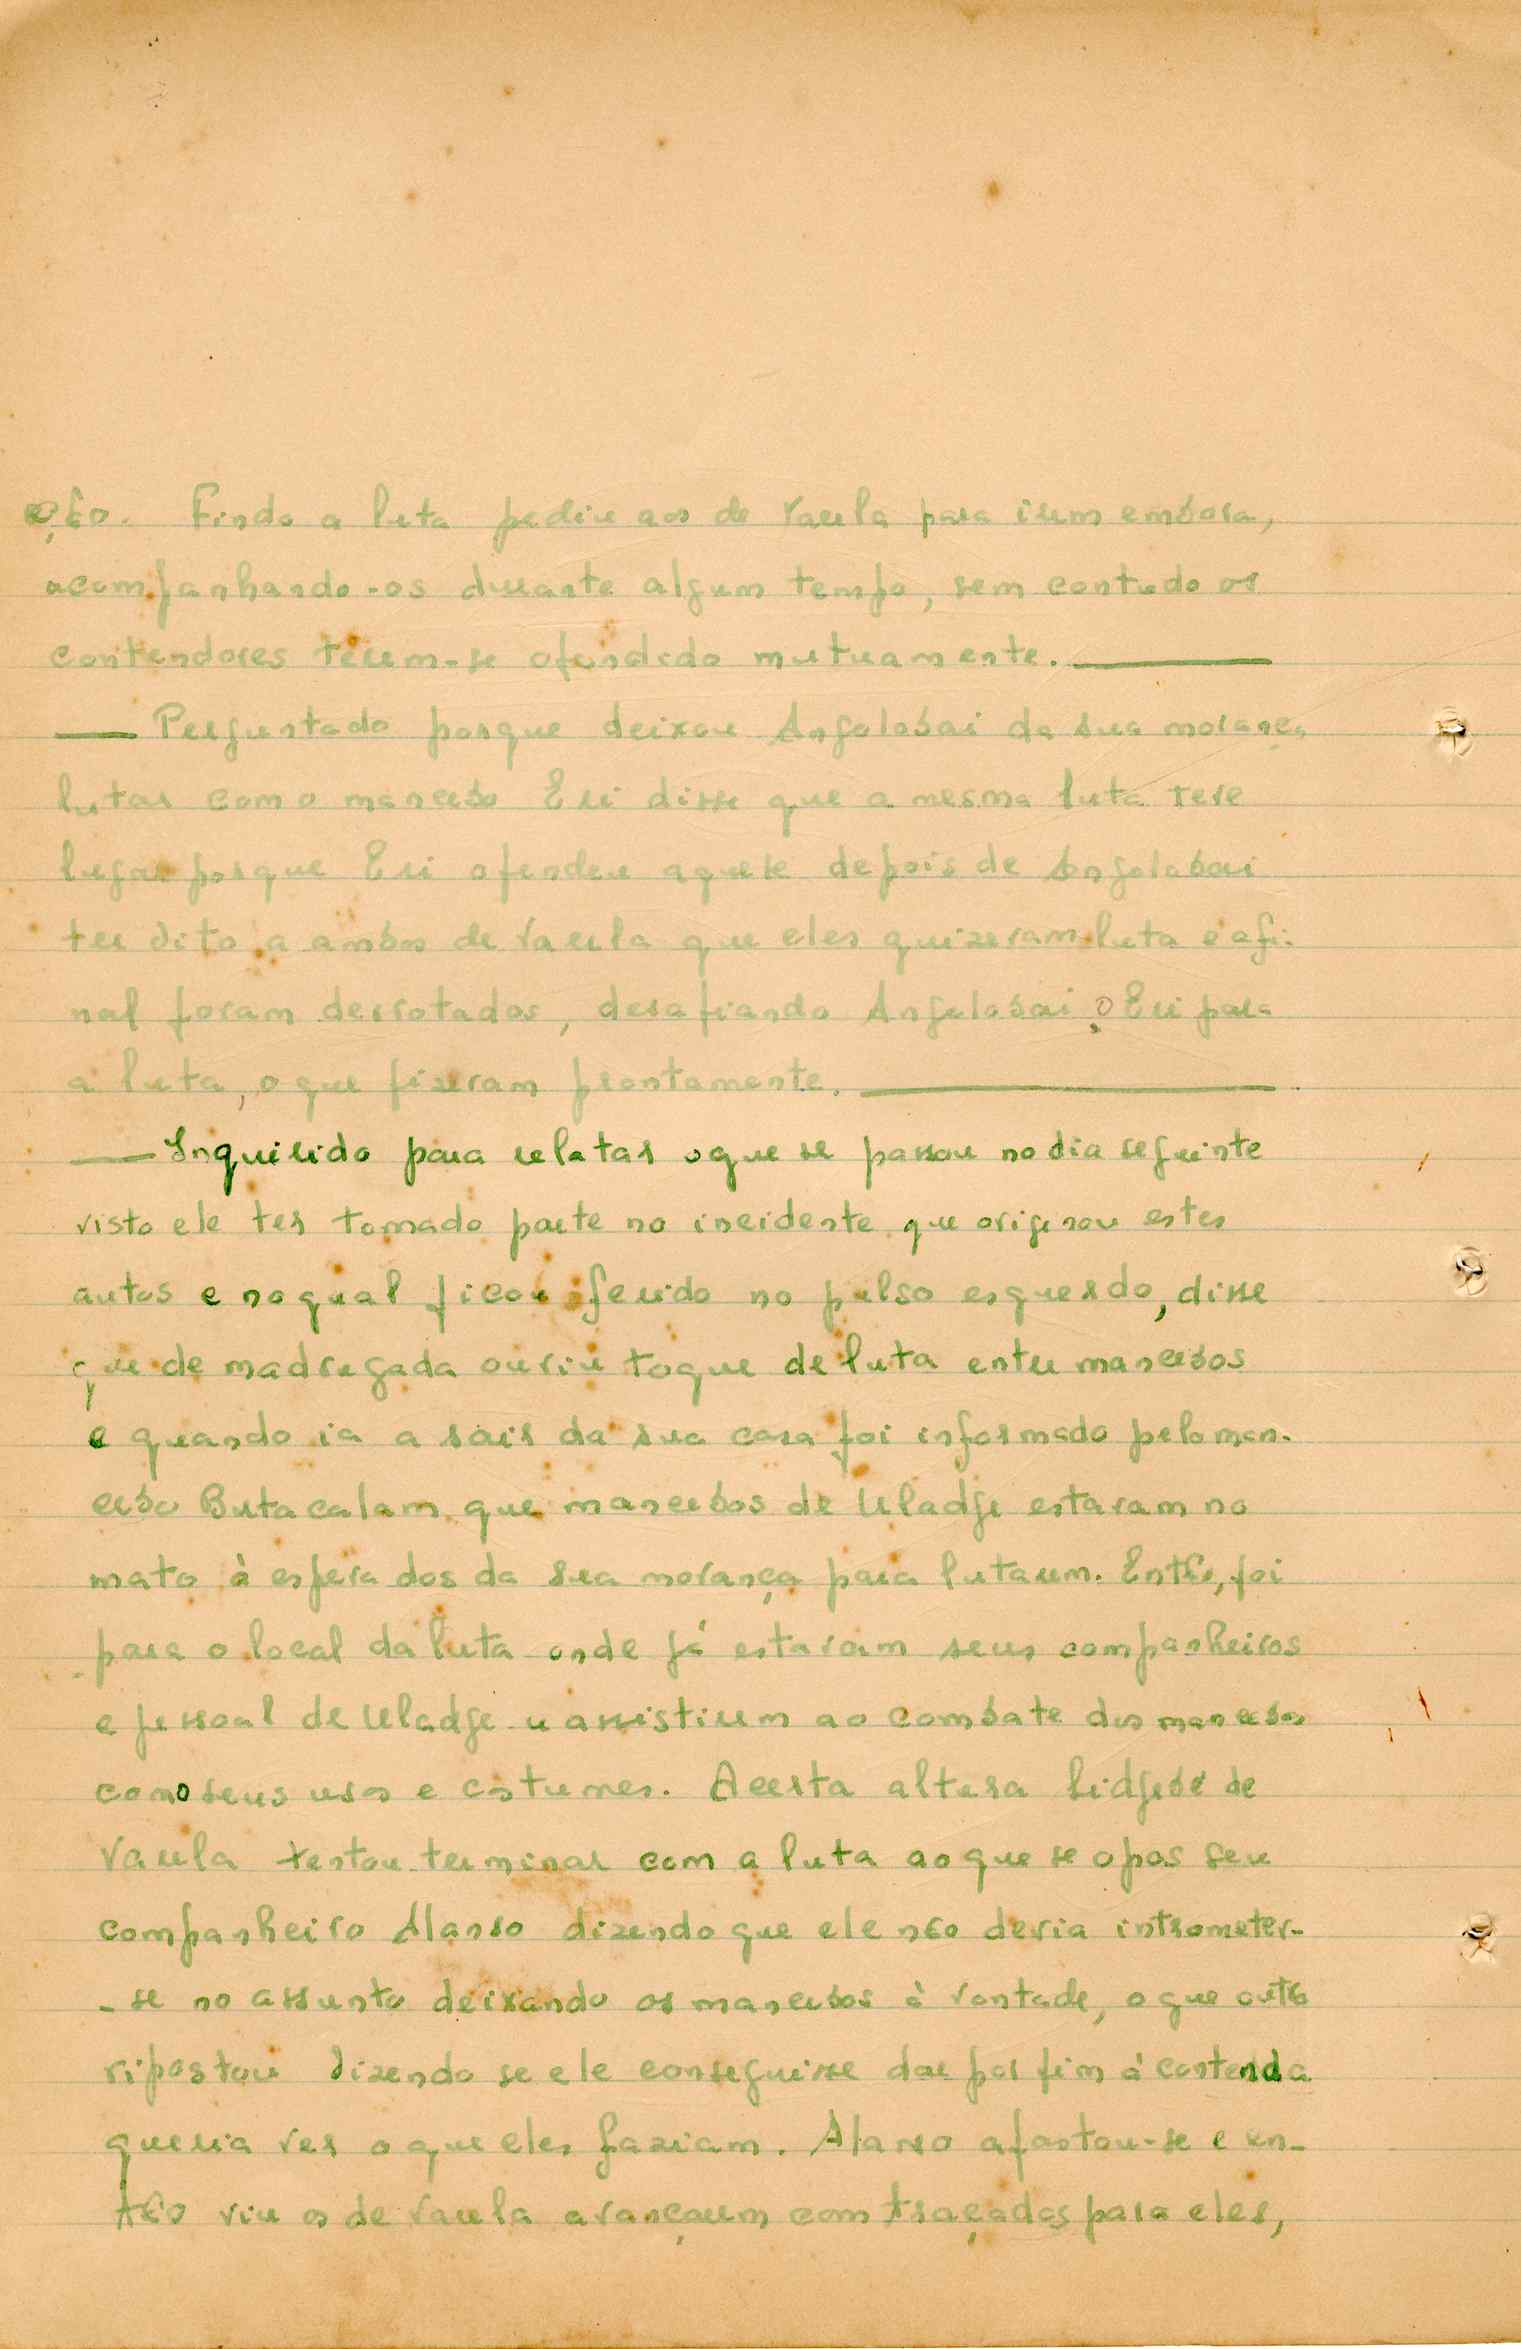 ção. Finda a luta pediu aos de Varela para irem embora,
acompanhando-os durante algum tempo, sem contudo os
contendores terem-se ofendido mutuamente.
— Perguntado porque deixou Angolabai da sua morança
lutar com o mancebo Eri disse que a mesma luta teve
lugar porque Eri ofendeu aquele depois de Angolabai
ter dito a ambos de Varela que eles quizeram luta e afi-
nal foram derrotados, desafiando Angolabai o Eri para
a luta, o que fizeram prontamente.
— Inquirido para relatar o que se passou no dia seguinte
visto ele ter tomado parte no incidente que originou estes
autos e no qual ficou ferido no pulso esquerdo, disse
que de madrugada ouviu toque de luta entre mancebos
e quando ia a sair da sua casa foi informado pelo man-
cebo Butacalam que mancebos de Uladje estavam no
mato à espera dos da sua morança para lutarem. Então, foi
para o local da luta onde já estavam seus companheiros
e pessoal de Uladje a assistirem ao combate dos mancebos
como seus usos e costumes. A certa altura Sidjebé de
Varela tentou terminar com a luta ao que se opos seu
companheiro Alanso dizendo que ele não devia intrometer-
-se no assunto deixando os mancebos à vontade, o que outro
ripostou dizendo se ele conseguisse dar por fim à contenda
queria ver o que eles faziam. Alanso afastou-se e en-
tão viu os de Varela avançarem com traçados para eles,